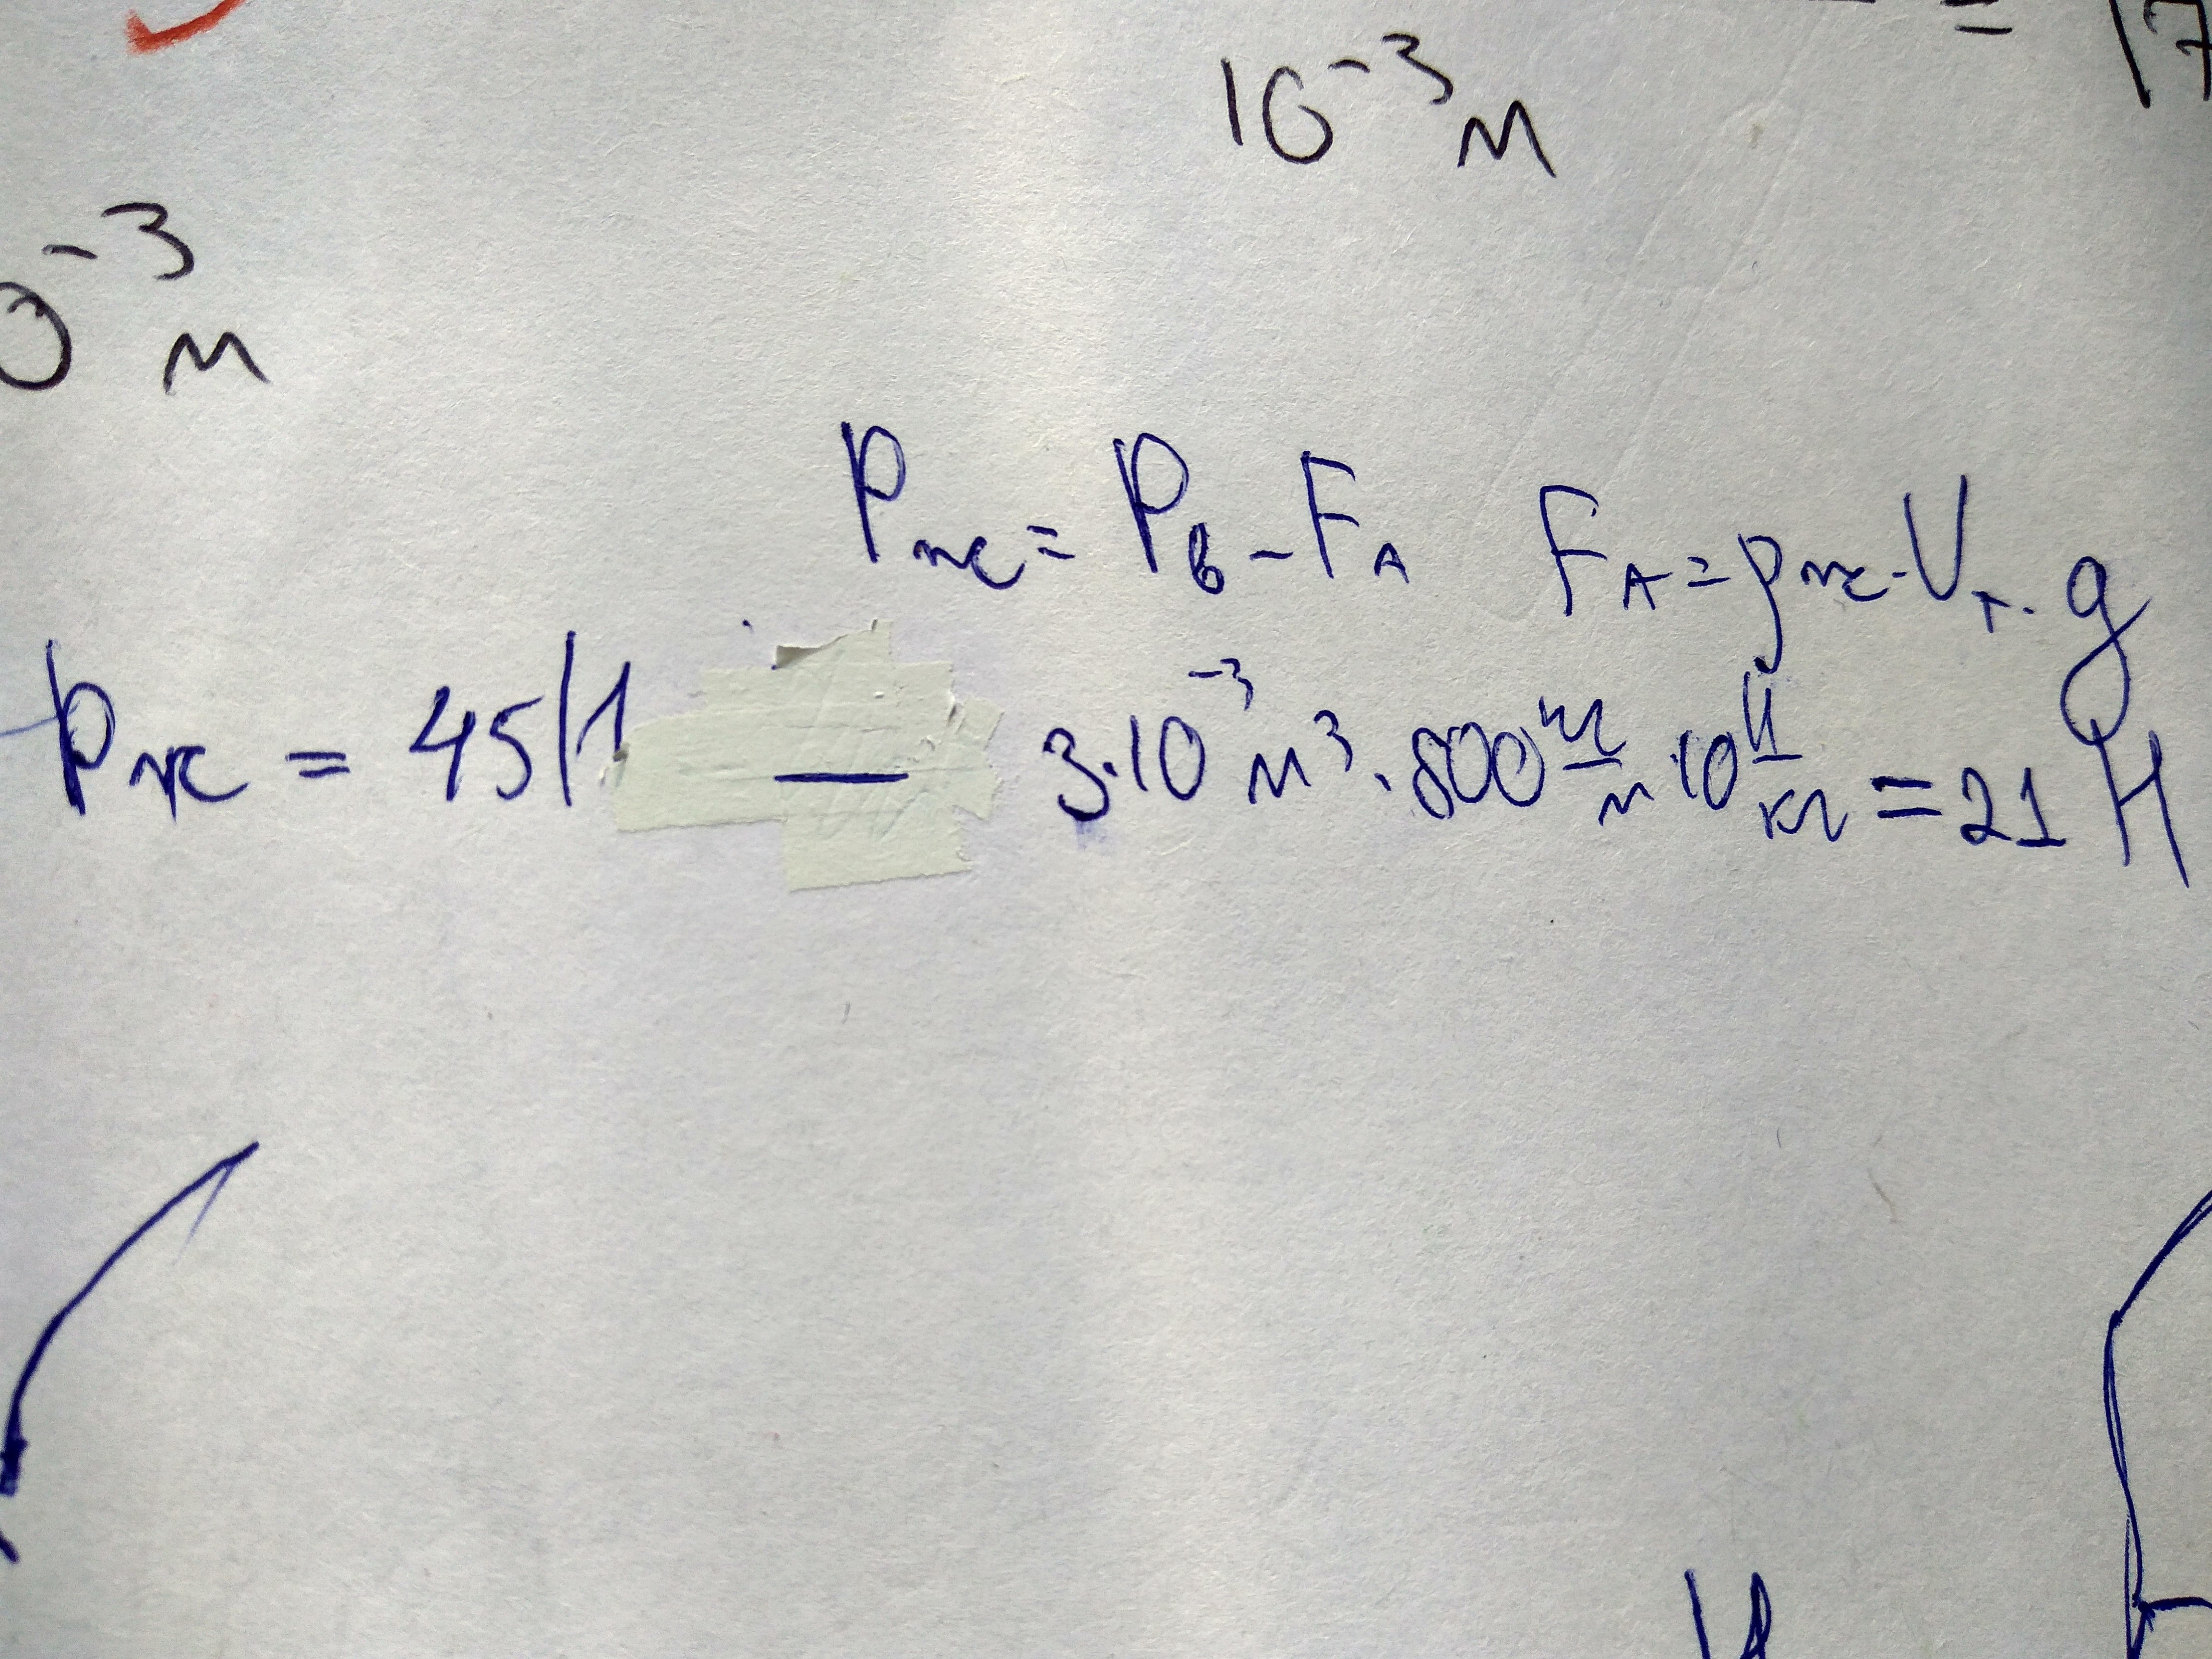 = 17
10⁻³ м
0⁻³ м
Pж = Pв - FА FА = ρж · Vт · g
Pж = 45Н — 3·10⁻³ м³ · 800 кг/м · 10 Н/кг = 21 Н